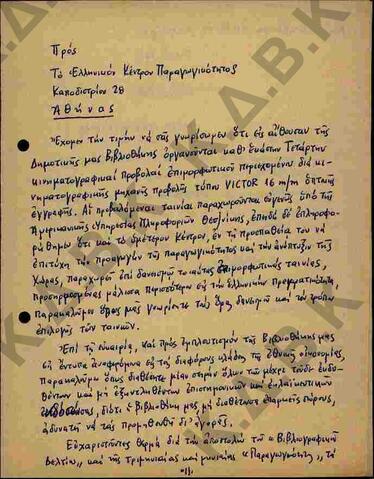 Πρός
Τό Ἑλληνικόν Κέντρον Παραγωγικότητος
Καποδιστρίου 28
Ἀθήνας
Ἔχομεν τήν τιμήν νά σᾶς γνωρίσωμεν ὅτι εἰς αἴθουσαν τῆς
Δημοτικῆς μας Βιβλιοθήκης ὀργανοῦνται καθ' ἑκάστην Τετάρτην
κινηματογραφικαί προβολαί ἐπιμορφωτικοῦ περιεχομένου διά κι-
νηματογραφικῆς μηχανῆς προβολῆς τύπου VICTOR 16 m/m
ἐγγραφῆς. Αἱ προβαλλόμεναι ταινίαι παραχωροῦνται εὐγενῶς ὑπό τῆς
Ἀμερικανικῆς Ὑπηρεσίας Πληροφοριῶν Θεσ/νίκης, ἐπειδή δέ ἐπληροφο-
ρήθημεν ὅτι καί τό ὑμέτερον Κέντρον, ἐν τῇ προσπαθείᾳ του νά
ἐπιτύχῃ τήν προαγωγήν τῆς παραγωγικότητος καί τήν ἀνάπτυξιν τῆς
χώρας, παραχωρεῖ ἐπί δανεισμῷ τοιαύτας ἐπιμορφωτικάς ταινίας,
προσηρμοσμένας μάλιστα περισσότερον εἰς τήν ἑλληνικήν πραγματικότητα,
παρακαλοῦμεν ὅπως μᾶς γνωρίσητε τούς ὅρους δανεισμοῦ καί τόν τρόπον
ἐπιλογῆς τῶν ταινιῶν.
Ἐπί τῇ εὐκαιρίᾳ, καί πρός ἐμπλουτισμόν τῆς Βιβλιοθήκης μας
εἰς ἔντυπα ἀναφερόμενα εἰς τούς διαφόρους κλάδους τῆς ἐθνικῆς οἰκονομίας,
παρακαλοῦμεν ὅπως διαθέσητε μίαν σειράν ὅλων τῶν μέχρι τοῦδε ἐκδο-
θέντων καί μή ἐξαντληθέντων ἐπιστημονικῶν καί ἐκλαϊκευτικῶν
ἐκδόσεων, διότι ἡ βιβλιοθήκη μας, μή διαθέτουσα ἐπαρκεῖς πόρους,
ἀδυνατεῖ νά τάς προμηθευθῇ δι' ἀγορᾶς.
Εὐχαριστοῦντες θερμά διά τήν ἀποστολήν τοῦ "Βιβλιογραφικοῦ
Δελτίου" καί τῆς τριμηνιαίας καί μηνιαίας "Παραγωγικότης", τά
Δ.Β.Κ